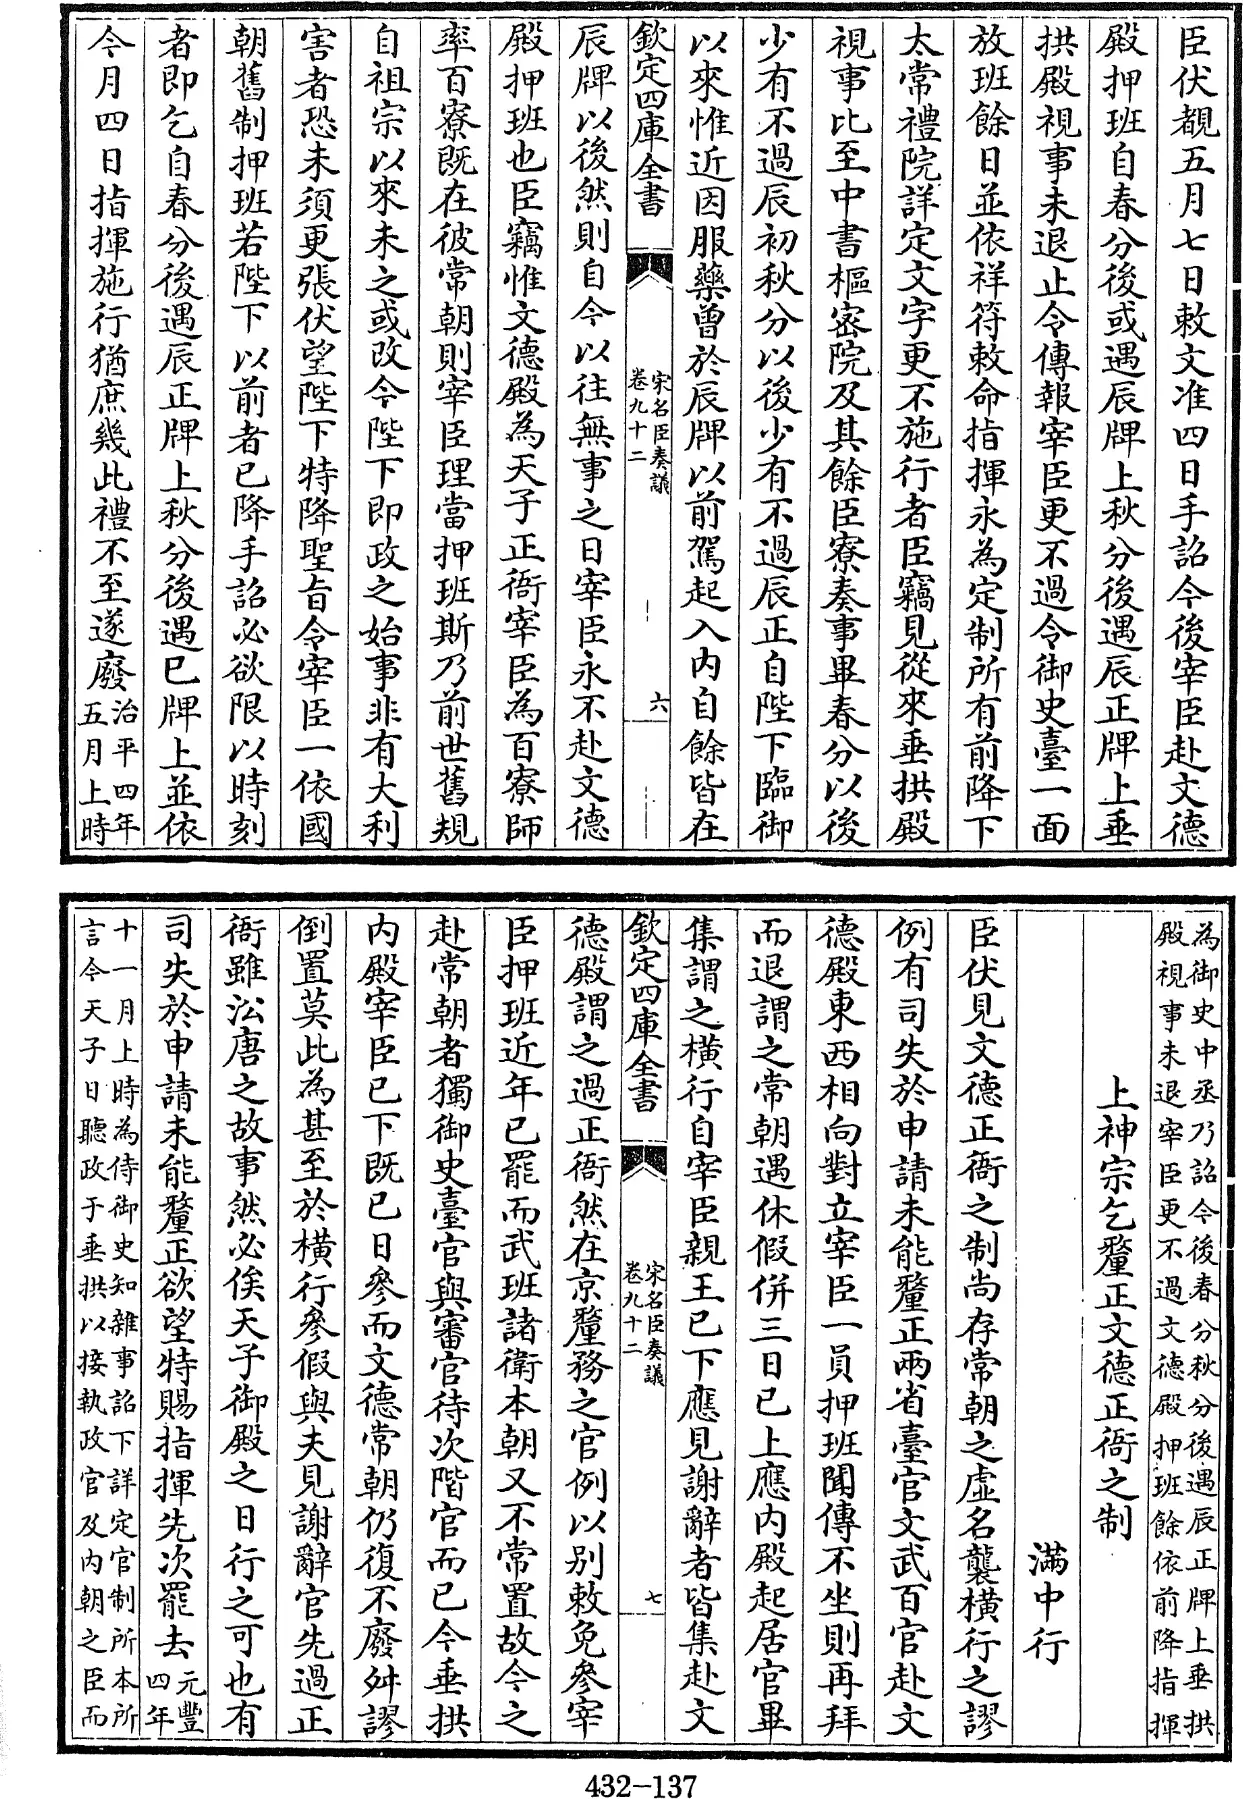 臣伏覩五月七日敕文准四日手詔今後宰臣赴文德
殿押班自春分後或遇辰牌上秋分後遇辰正牌上垂
拱殿視事未退止令傳報宰臣更不過令御史臺一面
放班餘日並依祥符敕命指揮永為定制所有前降下
太常禮院詳定文字更不施行者臣竊見從來垂拱殿
視事比至中書樞密院及其餘臣寮奏事畢春分以後
少有不過辰初秋分以後少有不過辰正自陛下臨御
以來惟近因服藥曾於辰牌以前駕起入內自餘皆在
欽定四庫全書
宋名臣奏議
卷九十二
六
辰牌以後然則自今以往無事之日宰臣永不赴文德
殿押班也臣竊惟文德殿為天子正衙宰臣為百寮師
率百寮既在彼常朝則宰臣理當押班斯乃前世舊規
自祖宗以來未之或改今陛下即政之始事非有大利
害者恐未須更張伏望陛下特降聖旨令宰臣一依國
朝舊制押班若陛下以前者已降手詔必欲限以時刻
者即乞自春分後遇辰正牌上秋分後遇巳牌上並依
今月四日指揮施行猶庶幾此禮不至遂廢
治平四年
五月上時
為御史中丞乃詔今後春分秋分後遇辰正牌上垂拱
殿視事未退宰臣更不過文德殿押班餘依前降指揮
上神宗乞釐正文德正衙之制
滿中行
臣伏見文德正衙之制尚存常朝之虛名襲橫行之謬
例有司失於申請未能釐正兩省臺官文武百官赴文
德殿東西相向對立宰臣一員押班聞傳不坐則再拜
而退謂之常朝遇休假併三日已上應內殿起居官畢
集謂之橫行自宰臣親王已下應見謝辭者皆集赴文
欽定四庫全書
宋名臣奏議
卷九十二
七
德殿謂之過正衙然在京釐務之官例以別敕免參宰
臣押班近年已罷而武班諸衛本朝又不常置故今之
赴常朝者獨御史臺官與審官待次階官而已今垂拱
內殿宰臣已下既已日參而文德常朝仍復不廢舛謬
倒置莫此為甚至於橫行參假與夫見謝辭官先過正
衙雖㳂唐之故事然必俟天子御殿之日行之可也有
司失於申請未能釐正欲望特賜指揮先次罷去
元豐
四年
十一月上時為侍御史知雜事詔下詳定官制所本所
言今天子日聽政于垂拱以接執政官及內朝之臣而
432-137